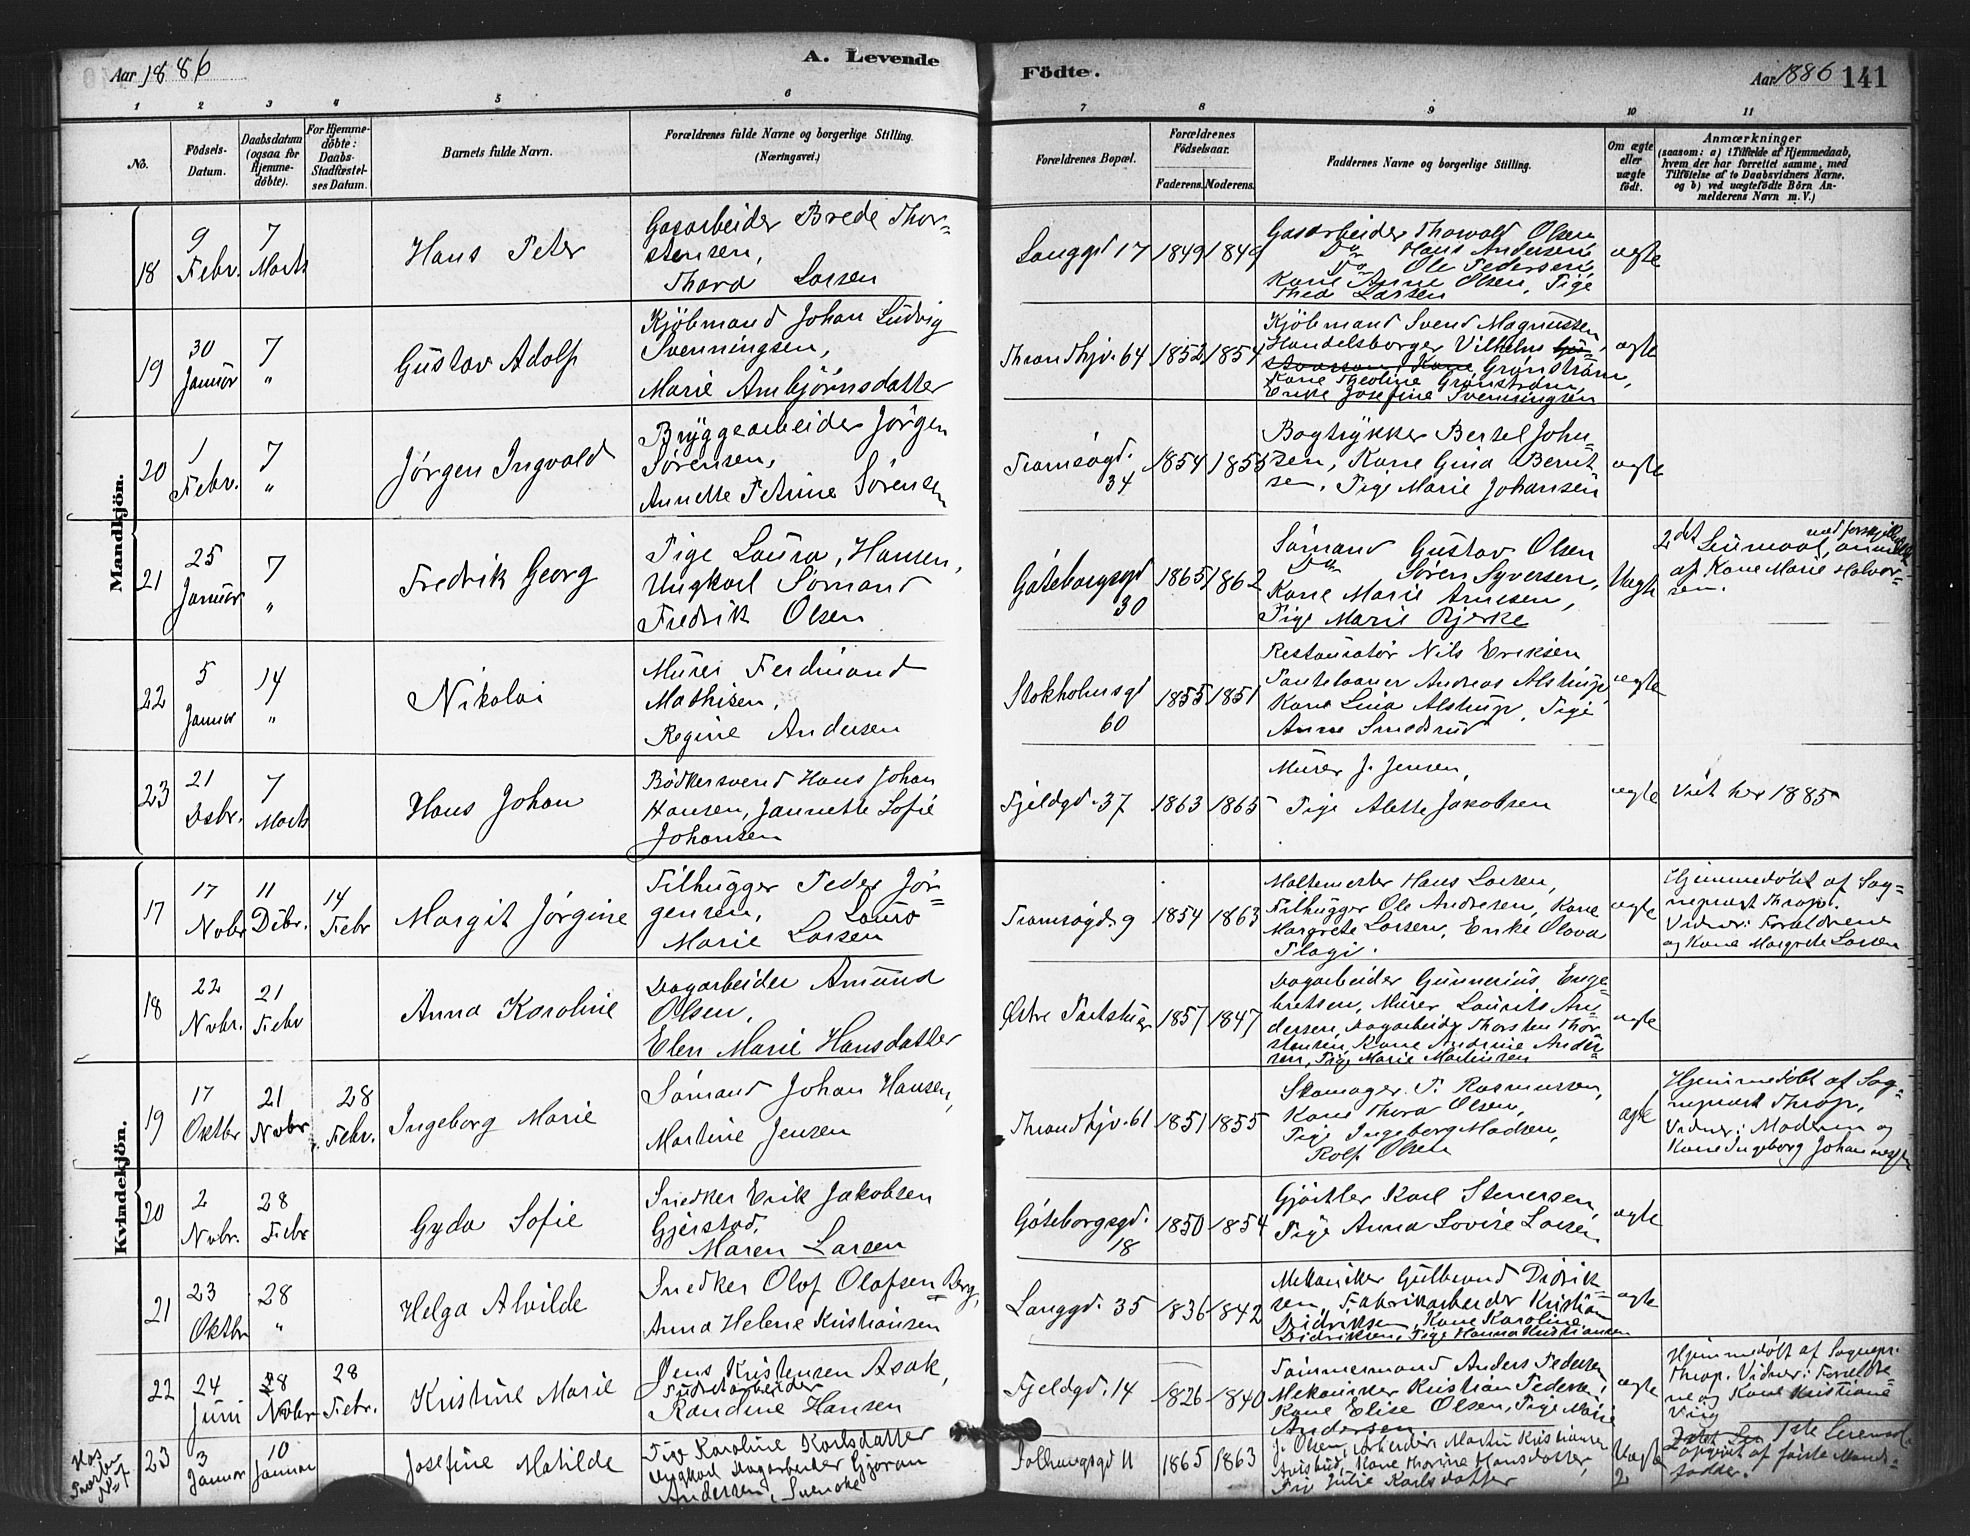 Aar 1886
A. Levende
Födte.
Aar 1886 141
1 2 3 4 5 6 7 8 9 10 11
No.
Födsels-
Datum.
Daabsdatum
(ogsaa for
Hjemme-
döbte).
For Hjemme-
döbte:
Daabs-
Stadfæstel-
ses Datum.
Barnets fulde Navn.
Forældrenes fulde Navne og borgerlige Stilling.
(Næringsvei.)
Forældrenes Bopæl.
Forældrenes
Födselsaar.
Faderens. Moderens.
Faddernes Navne og borgerlige Stilling.
Om ægte
eller
uægte
födt.
Anmærkninger
(saasom: a) i Tilfælde af Hjemmedaab,
hvem der har forrettet samme, med
Tilföielse af to Daabsvidners Navne,
og b) ved uægtefödte Börn An-
melderens Navn m. V.)
Mandkjön.
18
9
Febr.
7
Marts
Hans Peter
Gasarbeider Brede Thor-
stensen,
Thora Larsen
Langgd 17
1849 1849
Gasarbeider Thorvald Olsen
Do Hans Andersen
Do Ole Pedersen,
Kone Anne Olsen, Pige
Thea Larsen
ægte
19
30
Januar
7
"
Gustav Adolf
Kjöbmand Johan Ludvig
Svenningsen,
Marie Ambjörnsdatter
Throndhjv. 64
1852 1854
Kjöbmand Svend Magnussen
Handelsborger Vilhelm
Kone Grönström,
Kone Theoline Grönström,
Enke Josefine Svenningsen
ægte
20
1
Febr.
7
"
Jörgen Ingvald
Bryggearbeider Jörgen
Sörensen,
Annette Petrine Sörensen
Tromsögd.
34
1854 1855
Bogtrykker Bertel John-
sen, Kone Gina Bernt-
sen, Pige Marie Johansen
ægte
21
25
Januar
7
"
Fredrik Georg
Pige Laura Hansen,
Ungkarl Sömand
Fredrik Olsen
Göteborgsgd
30
1865 1862
Sömand Gustav Olsen
Do Sören Syversen,
Kone Marie Arnesen,
Pige Marie Bjerke
Uægte
2det Leiermaal, med forskjellig
af Kone Marie Halvor-
sen.
22
5
Januar
14
"
Nikolai
Murer Ferdinand
Mathisen,
Regine Andersen
Stokholmsgd
60
1855 1851
Restauratör Nils Eriksen
Pantelaaner Andreas Alstrup,
Kone Lina Alstrup, Pige
Anne Smedsrud
ægte
23
21
Dsbr.
7
Marts
Hans Johan
Bödkersvend Hans Johan
Hansen, Jannette Sofie
Johansen
Fjeldgd. 37
1863 1865
Murer J. Jensen,
Pige Alette Jakobsen
ægte
Viet her 1885
Kvindekjön.
17
17
Novbr
11
Debr.
14
Febr
Margit Jörgine
Filhugger Peder Jör-
gensen, Laura
Marie Larsen
Tromsögd. 9
1854 1863
Maltemester Hans Larsen,
Filhugger Ole Andresen, Kone
Margrete Larsen, Enke Olava
Flagi.
ægte
Hjemmedöbt af Sog-
neprest Throp.
Vidner: Forældrene
og Kone Margrete Larsen
18
22
Nvbr.
21
Febr
Anna Karoline
Dagarbeider Amund
Olsen,
Elen Marie Hansdatter
Östre Parkstuer
1857 1847
Dagarbeider Gunnerius Enge-
bretsen, Murer Laurits An-
dersen, Dagarbeider Thorsten Thor-
stensen, Kone Andrine Ander-
sen, Pige Marie Martinsen
ægte
19
17
Oktbr
21
Nvbr
28
Febr.
Ingeborg Marie
Sömand Johan Hansen,
Martine Jensen
Throndhjv. 61
1851 1855
Skomager P. Rasmussen,
Kone Thora Olsen,
Pige Ingeborg Madsen,
Rolf Olsen
ægte
Hjemmedöbt af Sog-
neprest Throp,
Vidner: Moderen og
Kone Ingeborg Johannessen
20
2
Nvbr.
28
Febr
Gyda Sofie
Snedker Erik Jakobsen
Gjerstad,
Maren Larsen
Göteborgsgd.
18
1850 1854
Gjörtler Karl Stenersen,
Pige Anna Lovise Larsen
ægte
21
23
Oktbr
28
"
Helga Alvilde
Snedker Olof Olofsen Berg,
Anna Helene Kristiansen
Langgd. 35
1836 1842
Mekaniker Gulbrand Didrik-
sen, Fabrikarbeider Kristian
Didriksen, Kone Karoline
Didriksen, Pige Hanna Kristiansen
ægte
22
24
Juni
28
Nvbr
28
Febr.
Kristine Marie
Jens Kristensen Asak,
Randine Hansen
Fjeldgd. 14
1826 1840
Tömmermand Anders Pedersen
Mekaniker Kristian Pedersen,
Kone Elise Olsen, Pige Marie
Andersen
ægte
Hjemmedöbt af Sognepr.
Throp. Vidner: Forældre-
ne og Kone Kristiane
Viig
Hos
23
3
Januar
10
Januar
Josefine Matilde
Pige Karoline Karlsdatter
Ungkarl Dagarbeider Göran
Andersen, Svenske
Solhaugsgd 11
1865 1863
J. Olsen, Arbeider Martin Kristiansen
Kone Thorine Hansdatter,
Pige Julie Karlsdatter
Uægte
2
1ste Leiermaal
opgivet af